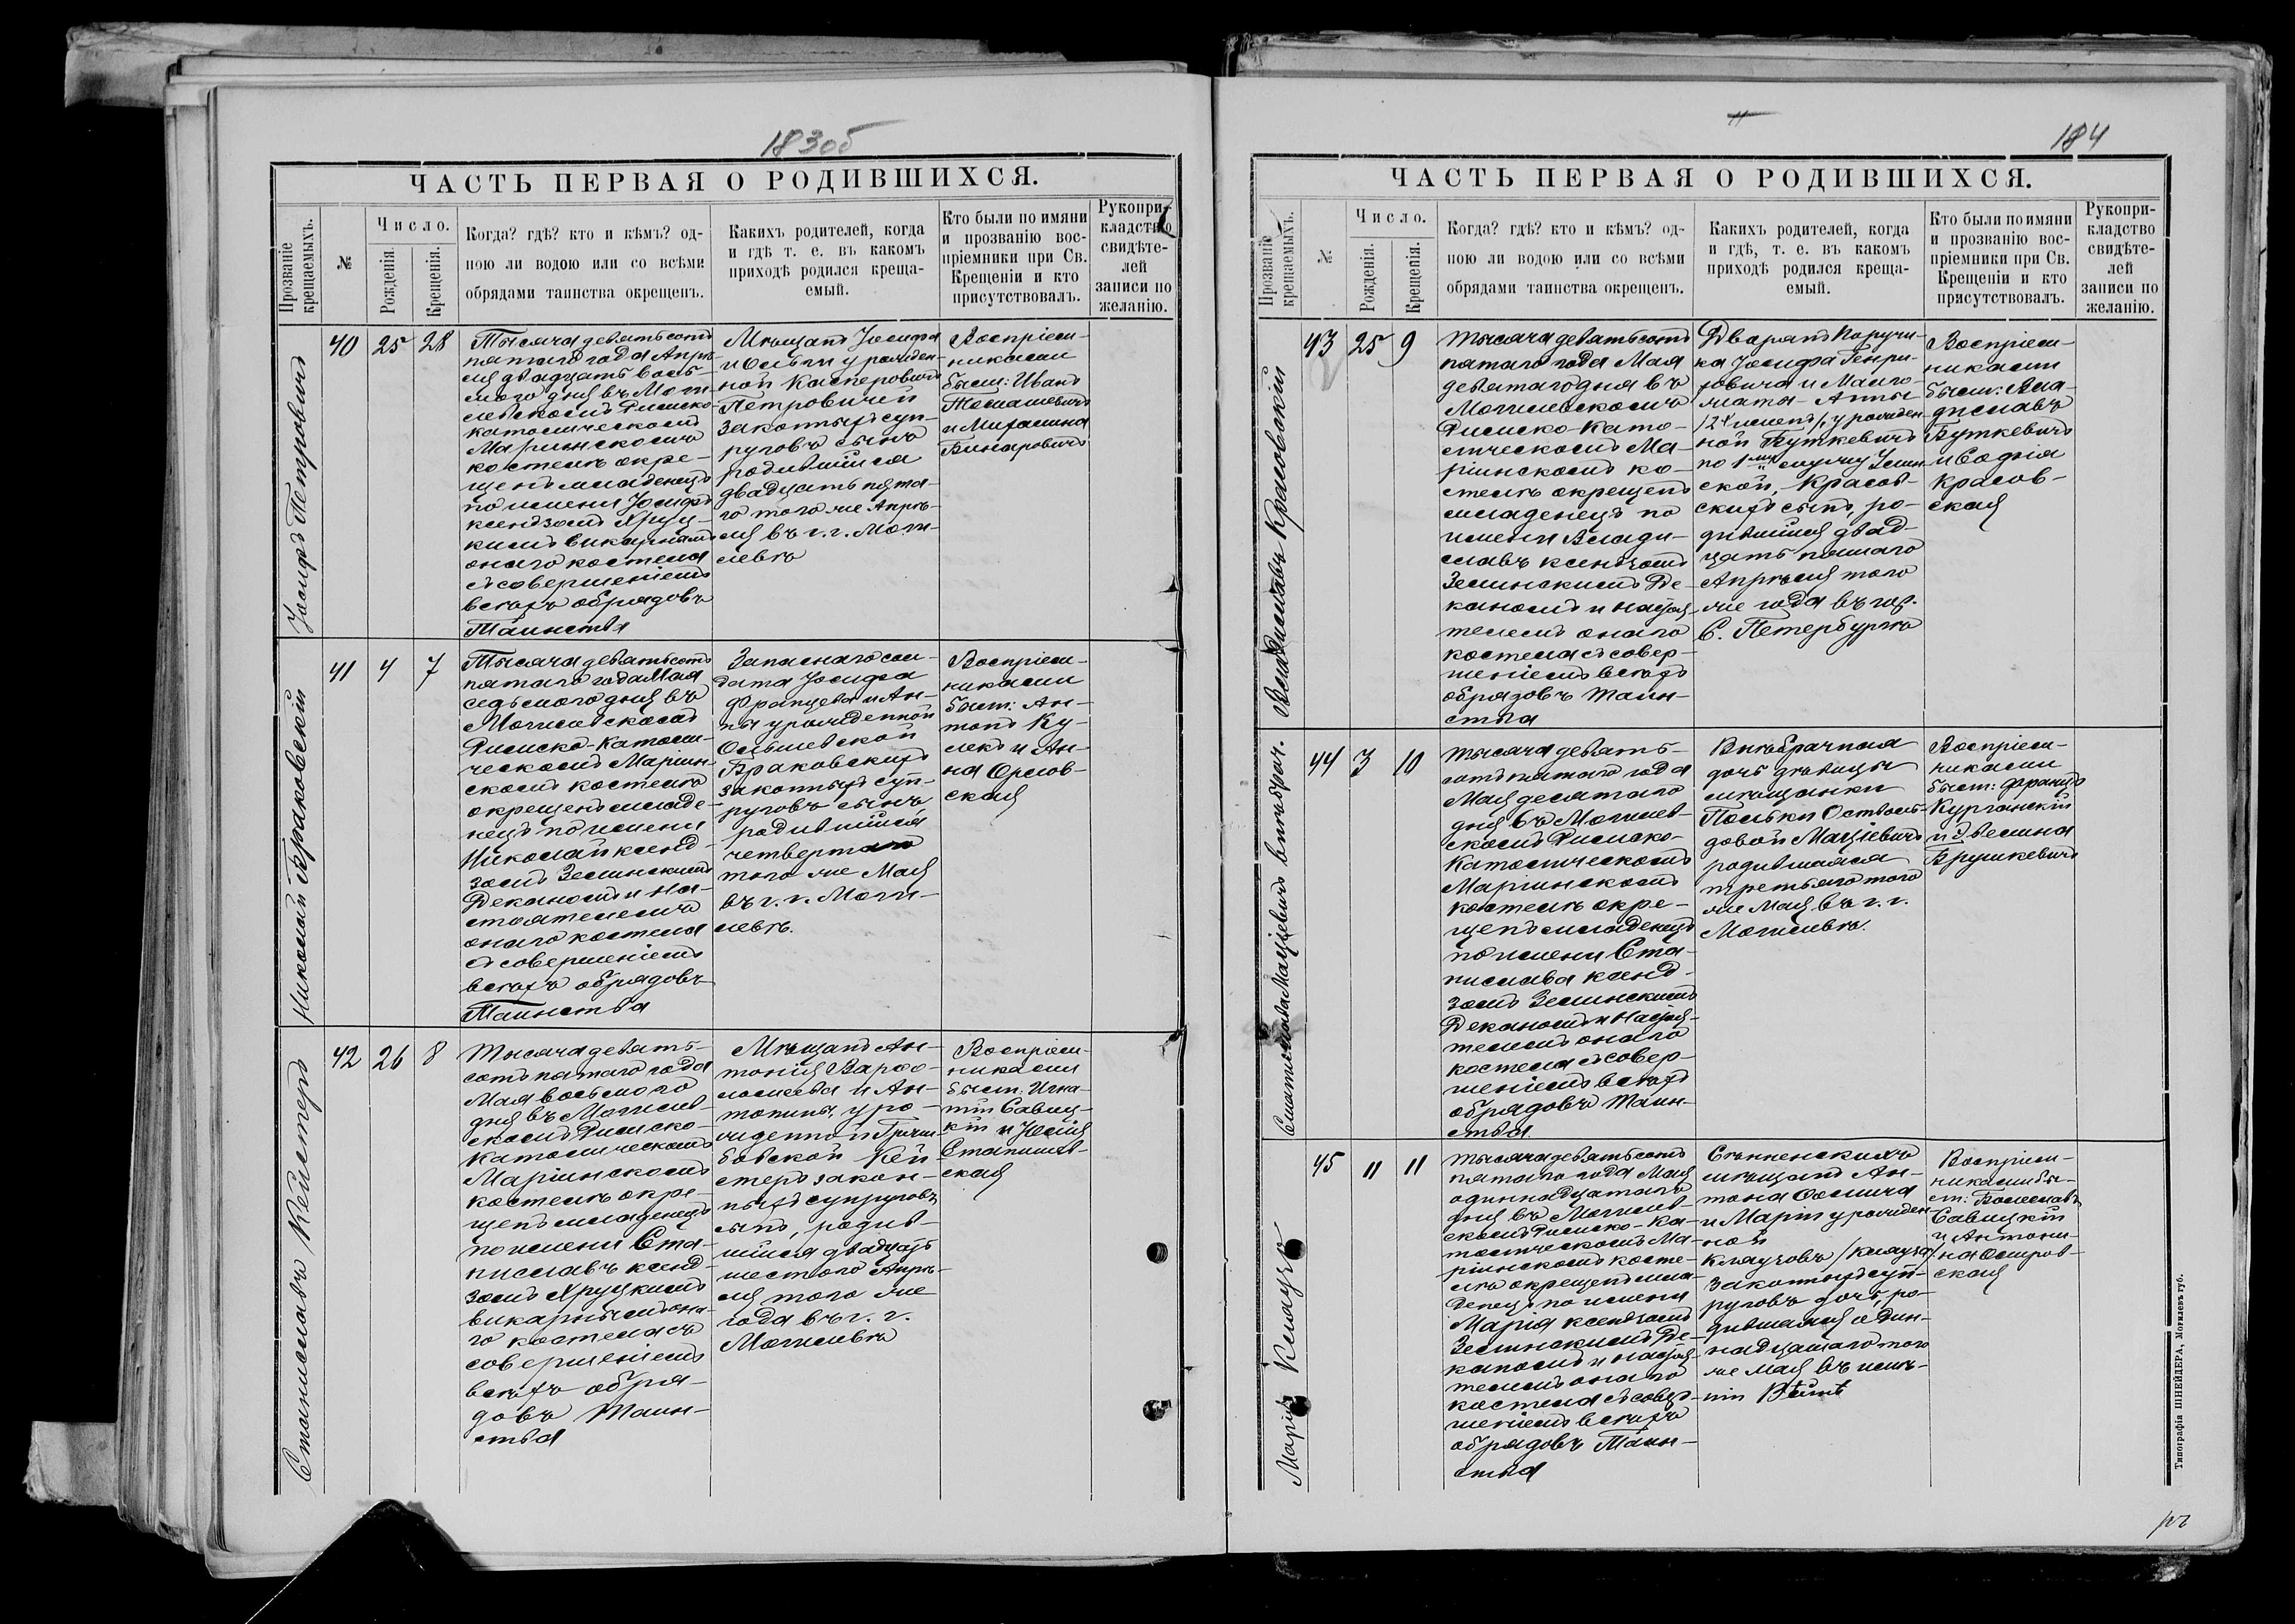 183об
ЧАСТЬ ПЕРВАЯ О РОДИВШИХСЯ.
Прозваніе крещаемыхъ.
№
Число.
Рожденія.
Крещенія.
Когда? гдѣ? кто и кѣмъ? од-
ною ли водою или со всѣми
обрядами таинства окрещенъ.
Какихъ родителей, когда
и гдѣ т. е. въ какомъ
приходѣ родился креща-
емый.
Кто были по имяни
и прозванію вос-
пріемники при Св.
Крещеніи и кто
присутствовалъ.
Рукопри-
кладство
свидѣте-
лей
записи по
желанію.
Іосифъ Петровичъ
40
25
28
Тысяча девятьсотъ
пятаго года Апрѣ-
ля двадцать вось-
мого дня въ Моги-
левскомъ Римско-
католическомъ
Маріинскомъ
костелѣ окре-
щенъ младенецъ
по имени Іосифъ
ксендзомъ Хруц-
кимъ викарнымъ
онаго костела
съ совершеніемъ
всѣхъ обрядовъ
Таинства
Мѣщанъ Іосифа
и Ольги урожден-
ной Касперовичъ
Петровичей
законныхъ суп-
руговъ сынъ
родившійся
двадцать пята-
го того же Апрѣ-
ля въ г. г. Моги-
левѣ
Воспріем-
никами
были: Иванъ
Томашевичъ
и Михалина
Бинаровичъ
Николай Браковскій
41
4
7
Тысяча девятьсотъ
пятаго года Мая
седьмого дня въ
Могилевскомъ
Римско-католи-
ческомъ Маріин-
скомъ костелѣ
окрещенъ младе-
нецъ по имени
Николай ксенд-
зомъ Зелинскимъ
Деканомъ и На-
стоятелемъ
онаго костела
съ совершеніемъ
всѣхъ обрядовъ
Таинства
Запаснаго сол-
дата Іосифа
Францева и Ан-
ны урожденной
Ольшевской
Браковскихъ
законныхъ суп-
руговъ сынъ
родившійся
четвертаго
того же Мая
въ г. г. Моги-
левѣ.
Воспріем-
никами
были: Ан-
тонъ Ку-
лекъ и Ан-
на Орлов-
ская
Станиславъ Кейстеръ
42
26
8
Тысяча девять-
сотъ пятаго года
Мая восьмого
дня въ Могилев-
скомъ Римско-
Католическомъ
Маріинскомъ
костелѣ окре-
щенъ младенецъ
по имени Ста-
ниславъ ксенд-
зомъ Хруцкимъ
викарнымъ она-
го костела съ
совершеніемъ
всѣхъ обря-
довъ Таин-
ства
Мѣщанъ Ан-
тонія Варѳо-
ломеева и Ан-
тонины, уро-
жденной
бовской Кей-
стеръ закон-
ныхъ супруговъ
сынъ, родив-
шійся двадцать
шестого Апрѣ-
ля того же
года въ г. г.
Могилевѣ
Воспріем-
никами
были: Игна-
тій Савиц-
кій и Юлія
Станишев-
ская
184
ЧАСТЬ ПЕРВАЯ О РОДИВШИХСЯ.
Прозваніе крещаемыхъ.
№
Число.
Рожденія.
Крещенія.
Когда? гдѣ? кто и кѣмъ? од-
ною ли водою или со всѣми
обрядами таинства окрещенъ.
Какихъ родителей, когда
и гдѣ, т. е. въ какомъ
приходѣ родился креща-
емый.
Кто были по имяни
и прозванію вос-
пріемники при Св.
Крещеніи и кто
присутствовалъ.
Рукопри-
кладство
свидѣте-
лей
записи по
желанію.
Владиславъ Красовскій
43
25
9
Тысяча девятьсотъ
пятаго года Мая
девятаго дня въ
Могилевскомъ
Римско-Като-
лическомъ Ма-
ріинскомъ ко-
стелѣ окрещенъ
младенецъ по
имени Влади-
славъ ксендзомъ
Зелинскимъ Де-
каномъ и Настоя-
телемъ онаго
костела съ совер-
шеніемъ всѣхъ
обрядовъ Таин-
ства
Дворянъ Поручи-
ка Іосифа Генри-
ховича и Малго-
жаты-Анны
/2 именъ/, урожден-
ной Буткевичъ
по 1му мужу
ской, Красов-
скихъ сынъ, ро-
дившійся двад-
цать пятаго
Апрѣля того
же года въ гор.
С. Петербургѣ
Воспріем-
никами
были: Вла-
диславъ
Буткевичъ
и Софія
Красов-
ская
Станислава Мацѣевичъ внѣбрач.
44
3
10
Тысяча девять-
сотъ пятаго года
Мая десятаго
дня въ Могилев-
скомъ Римско-
Католическомъ
Маріинскомъ
костелѣ окре-
щенъ младенецъ
по имени Ста-
нислава ксенд-
зомъ Зелинскимъ
Деканомъ и Настоя-
телемъ онаго
костела съ совер-
шеніемъ всѣхъ
обрядовъ Таин-
ства.
Внѣбрачная
дочь дѣвицы
мѣщанки
Польки
довой Маціевичъ
родившаяся
третьяго того
же Мая въ г. г.
Могилевѣ.
Воспріем-
никами
были: Францъ
Курганскій
и Эвелина
Брушкевичъ
Марія Клаузо
45
11
11
Тысяча девятьсотъ
пятаго года Мая
одиннадцатаго
дня въ Могилев-
скомъ Римско-Ка-
толическомъ Ма-
ріинскомъ косте-
лѣ окрещенъ мла-
денецъ по имени
Марія ксендзомъ
Зелинскимъ Де-
каномъ и Настоя-
телемъ онаго
костела съ совер-
шеніемъ всѣхъ
обрядовъ Таин-
ства
Сѣнненскихъ
мѣщанъ Ан-
тона Ѳомича
и Маріи урожден-
ной
Клаузовъ /Клаузо/
законныхъ суп-
руговъ дочь, ро-
дившаяся один-
надцатаго того
же Мая въ имѣ-
ніи
Воспріем-
никами бы-
ли: Болеславъ
Савицкій
и Антони-
на Остров-
ская
Типографія ШНЕЙДЕРА, Могилевъ губ.